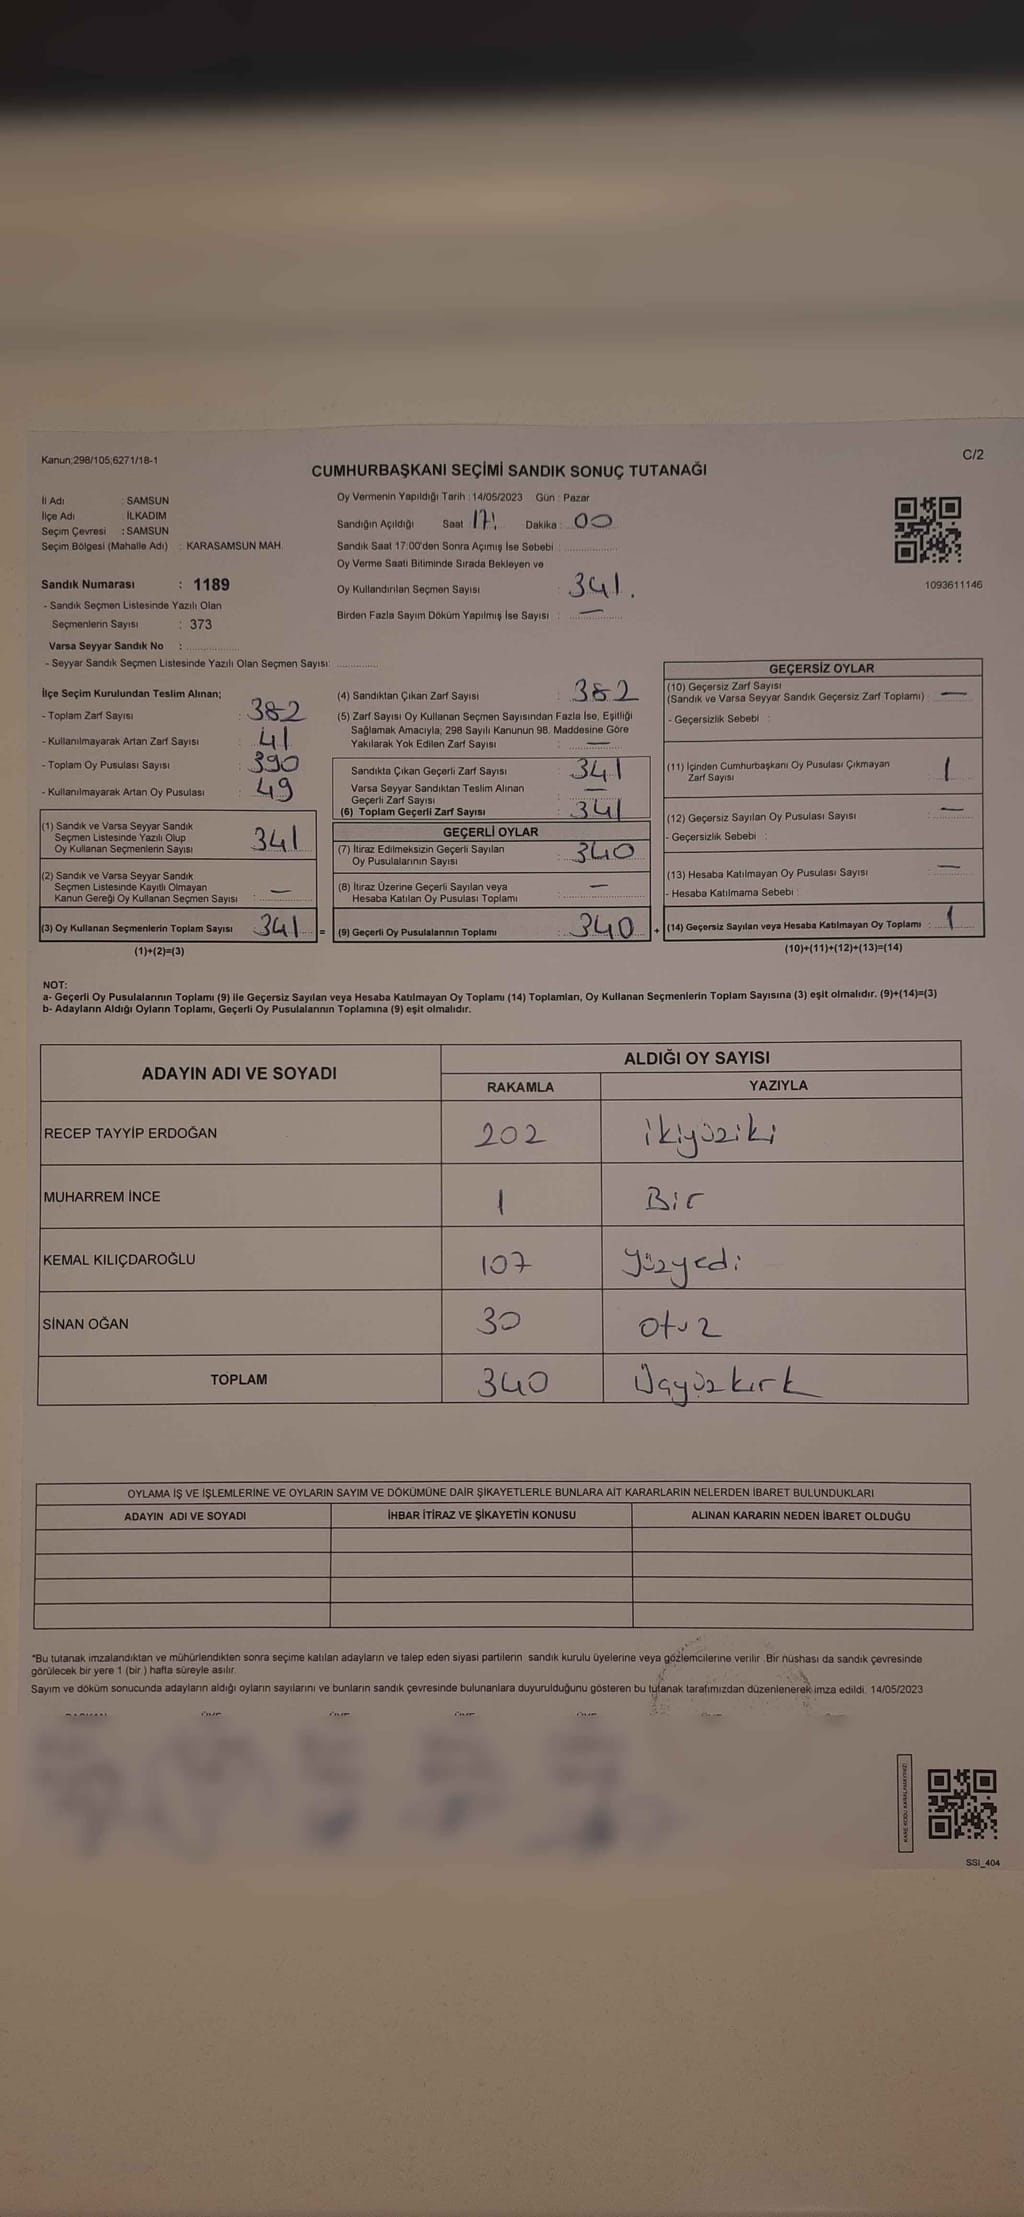 Kanun;298/105;6271/18-1
C/2
CUMHURBAŞKANI SEÇİMİ SANDIK SONUÇ TUTANAĞI
İl Adı : SAMSUN
İlçe Adı : İLKADIM
Seçim Çevresi : SAMSUN
Seçim Bölgesi (Mahalle Adı) : KARASAMSUN MAH.
Oy Vermenin Yapıldığı Tarih : 14/05/2023 Gün : Pazar
Sandığın Açıldığı Saat : 17: Dakika : 00
Sandık Saat 17:00'den Sonra Açımış İse Sebebi :
Oy Verme Saati Bitiminde Sırada Bekleyen ve
Oy Kullandırılan Seçmen Sayısı : 341.
Birden Fazla Sayım Döküm Yapılmış İse Sayısı : —
1093611146
Sandık Numarası : 1189
- Sandık Seçmen Listesinde Yazılı Olan
Seçmenlerin Sayısı : 373
Varsa Seyyar Sandık No :
- Seyyar Sandık Seçmen Listesinde Yazılı Olan Seçmen Sayısı:
İlçe Seçim Kurulundan Teslim Alınan;
- Toplam Zarf Sayısı : 382
- Kullanılmayarak Artan Zarf Sayısı : 41
- Toplam Oy Pusulası Sayısı : 390
- Kullanılmayarak Artan Oy Pusulası : 49
(1) Sandık ve Varsa Seyyar Sandık
Seçmen Listesinde Yazılı Olup
Oy Kullanan Seçmenlerin Sayısı : 341
(2) Sandık ve Varsa Seyyar Sandık
Seçmen Listesinde Kayıtlı Olmayan
Kanun Gereği Oy Kullanan Seçmen Sayısı : —
(3) Oy Kullanan Seçmenlerin Toplam Sayısı : 341 =
(1)+(2)=(3)
(4) Sandıktan Çıkan Zarf Sayısı : 382
(5) Zarf Sayısı Oy Kullanan Seçmen Sayısından Fazla İse, Eşitliği
Sağlamak Amacıyla; 298 Sayılı Kanunun 98. Maddesine Göre
Yakılarak Yok Edilen Zarf Sayısı : —
Sandıkta Çıkan Geçerli Zarf Sayısı : 341
Varsa Seyyar Sandıktan Teslim Alınan
Geçerli Zarf Sayısı : —
(6) Toplam Geçerli Zarf Sayısı : 341
GEÇERLİ OYLAR
(7) İtiraz Edilmeksizin Geçerli Sayılan
Oy Pusulalarının Sayısı : 340
(8) İtiraz Üzerine Geçerli Sayılan veya
Hesaba Katılan Oy Pusulası Toplamı : —
(9) Geçerli Oy Pusulalarının Toplamı : 340 +
GEÇERSİZ OYLAR
(10) Geçersiz Zarf Sayısı
(Sandık ve Varsa Seyyar Sandık Geçersiz Zarf Toplamı) : —
- Geçersizlik Sebebi :
(11) İçinden Cumhurbaşkanı Oy Pusulası Çıkmayan
Zarf Sayısı : 1
(12) Geçersiz Sayılan Oy Pusulası Sayısı : —
- Geçersizlik Sebebi :
(13) Hesaba Katılmayan Oy Pusulası Sayısı : —
- Hesaba Katılmama Sebebi :
(14) Geçersiz Sayılan veya Hesaba Katılmayan Oy Toplamı : 1
(10)+(11)+(12)+(13)=(14)
NOT:
a- Geçerli Oy Pusulalarının Toplamı (9) ile Geçersiz Sayılan veya Hesaba Katılmayan Oy Toplamı (14) Toplamları, Oy Kullanan Seçmenlerin Toplam Sayısına (3) eşit olmalıdır. (9)+(14)=(3)
b- Adayların Aldığı Oyların Toplamı, Geçerli Oy Pusulalarının Toplamına (9) eşit olmalıdır.
ADAYIN ADI VE SOYADI
ALDIĞI OY SAYISI
RAKAMLA YAZIYLA
RECEP TAYYİP ERDOĞAN 202 ikiyüziki
MUHARREM İNCE 1 Bir
KEMAL KILIÇDAROĞLU 107 yüzyedi
SİNAN OĞAN 30 otuz
TOPLAM 340 Üçyüzkırk
OYLAMA İŞ VE İŞLEMLERİNE VE OYLARIN SAYIM VE DÖKÜMÜNE DAİR ŞİKAYETLERLE BUNLARA AİT KARARLARIN NELERDEN İBARET BULUNDUKLARI
ADAYIN ADI VE SOYADI İHBAR İTİRAZ VE ŞİKAYETİN KONUSU ALINAN KARARIN NEDEN İBARET OLDUĞU
*Bu tutanak imzalandıktan ve mühürlendikten sonra seçime katılan adayların ve talep eden siyasi partilerin sandık kurulu üyelerine veya gözlemcilerine verilir .Bir nüshası da sandık çevresinde
görülecek bir yere 1 (bir ) hafta süreyle asılır.
Sayım ve döküm sonucunda adayların aldığı oyların sayılarını ve bunların sandık çevresinde bulunanlara duyurulduğunu gösteren bu tutanak tarafımızdan düzenlenerek imza edildi. 14/05/2023
KARE KODU KARALAMAYINIZ!
SSI_404